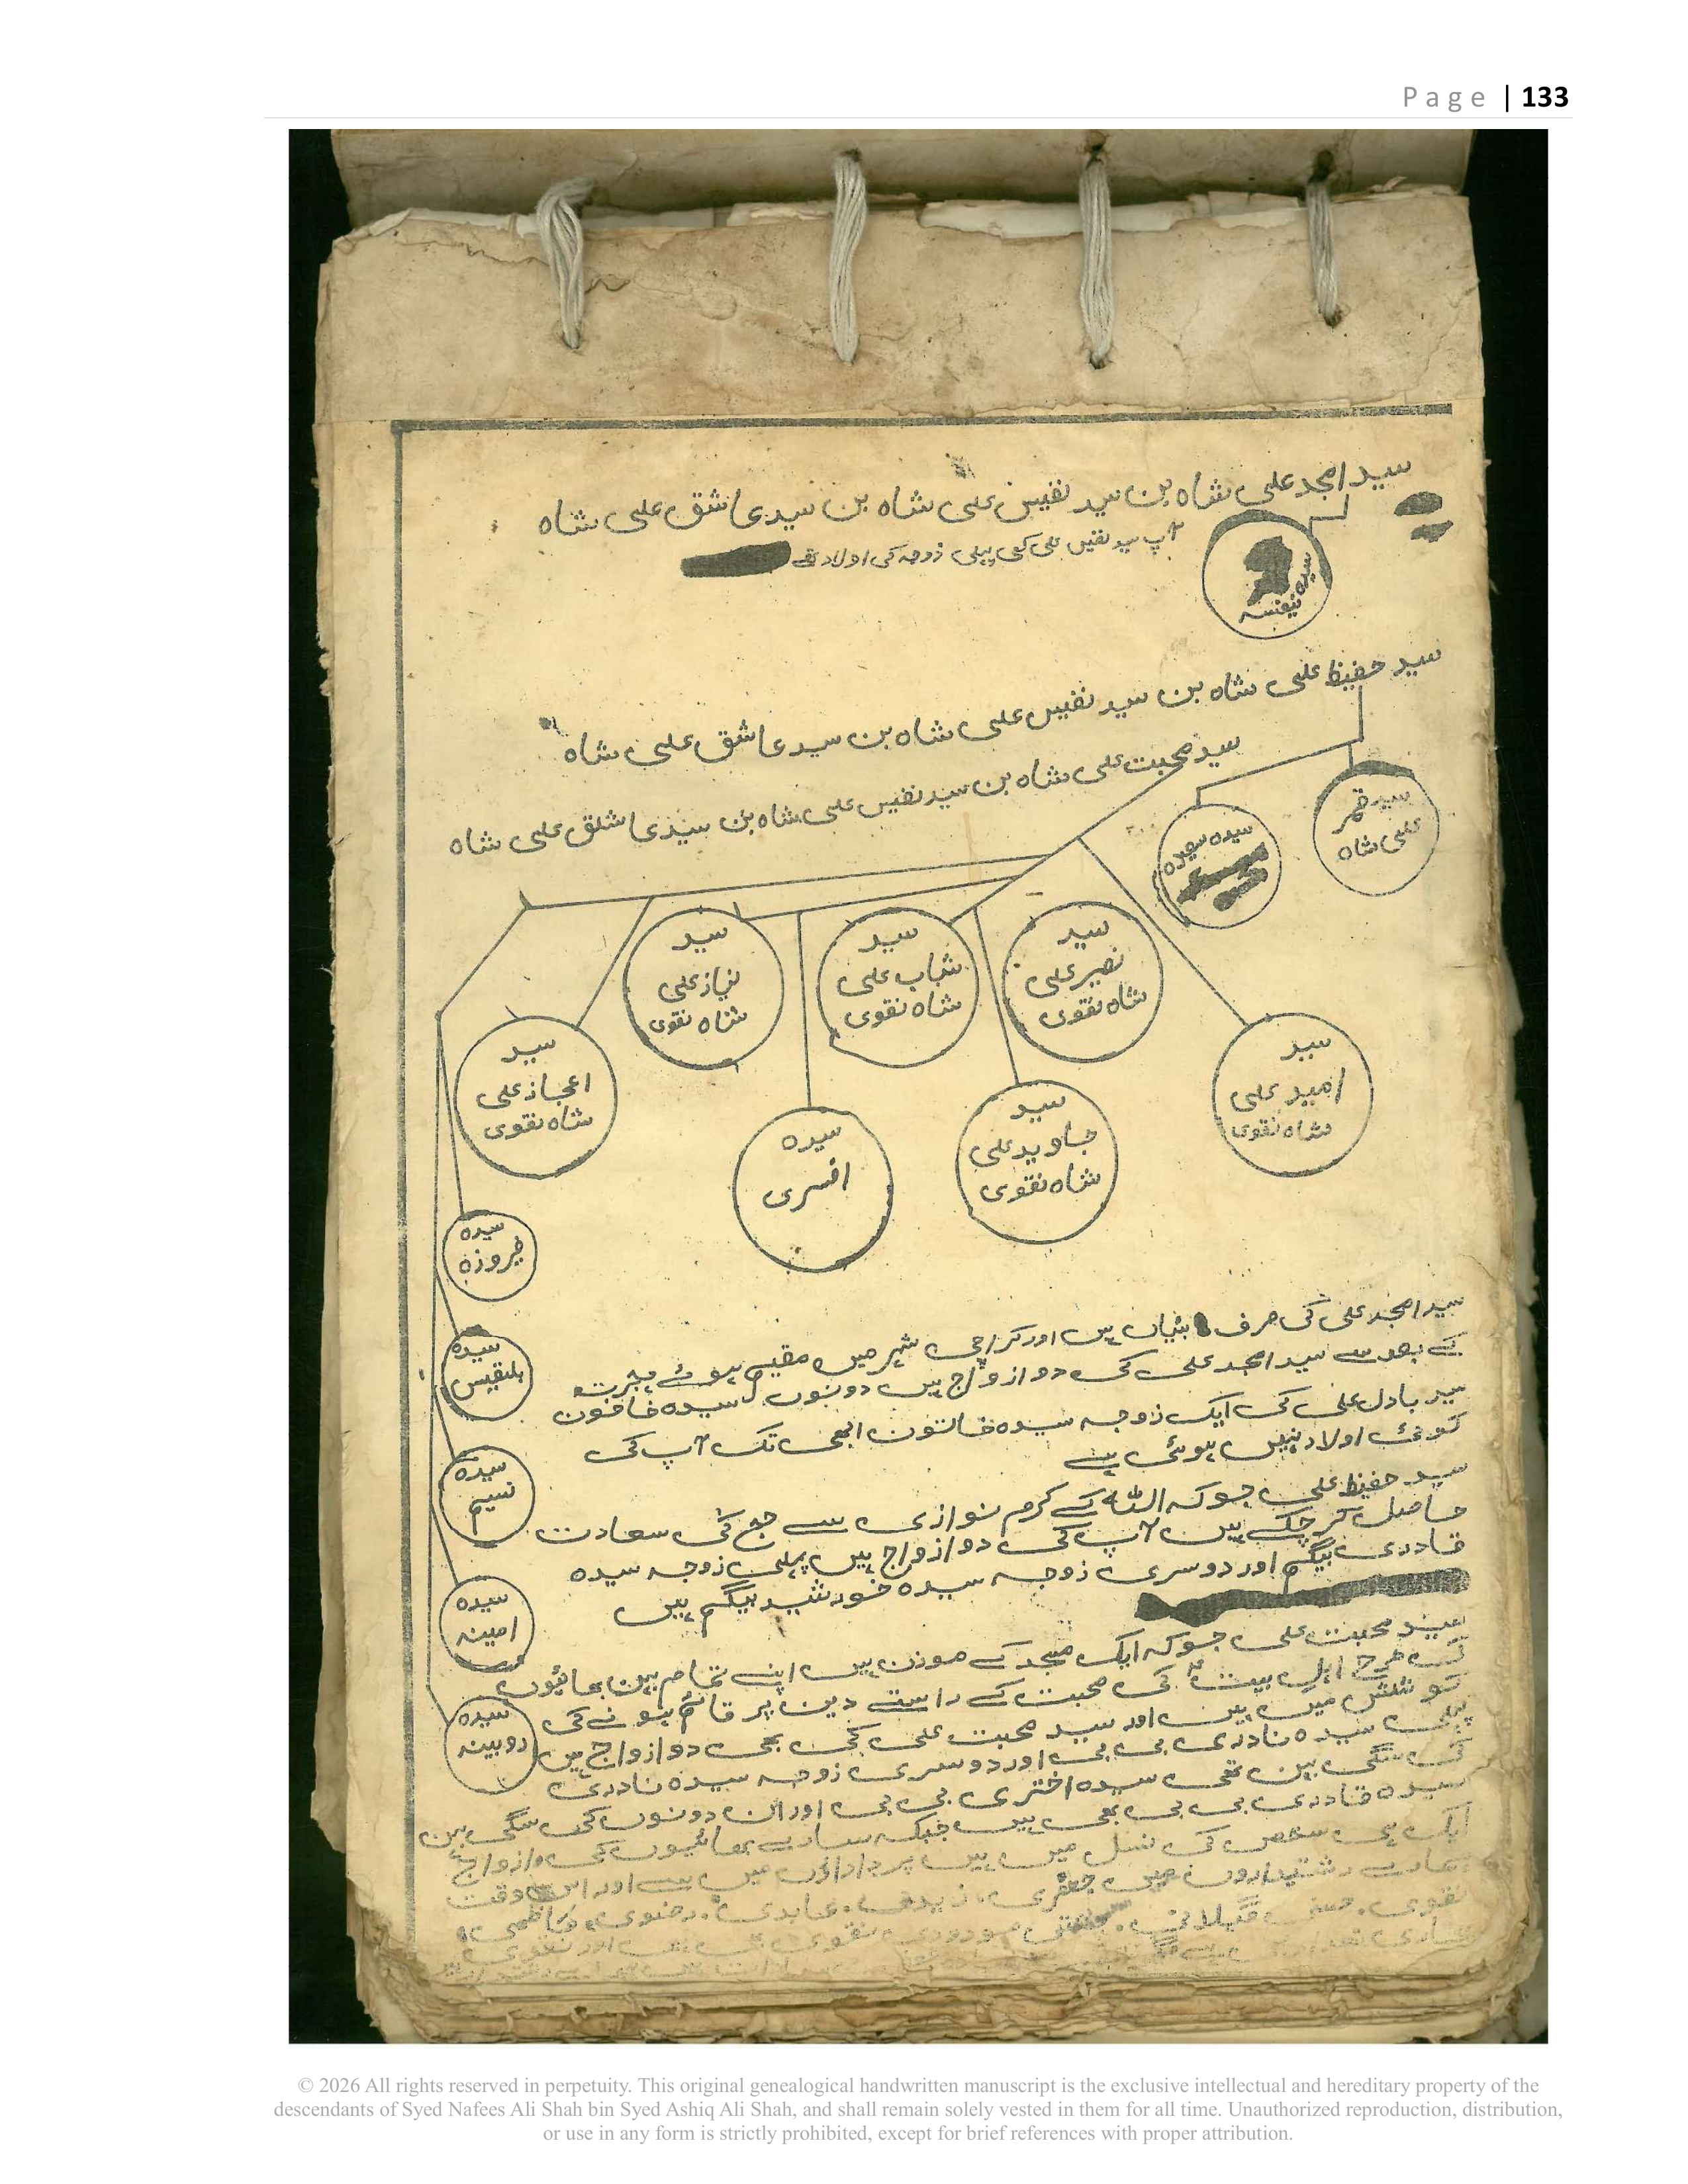 Page | 133
سید امجد علی شاہ بن سید نفیس علی شاہ بن سید عاشق علی شاہ
آپ سید نفیس علی کی پہلی زوجہ کی اولاد تھے
سیدہ نفیسہ
سید حفیظ علی شاہ بن سید نفیس علی شاہ بن سید عاشق علی شاہ
سید محبت علی شاہ بن سید نفیس علی شاہ بن سید عاشق علی شاہ
سید قمر
علی شاہ
سیدہ سعیدہ
سید
نصیر علی
شاہ نقوی
سید
شباب علی
شاہ نقوی
سید
نیاز علی
شاہ نقوی
سید
امید علی
شاہ نقوی
سید
جاوید علی
شاہ نقوی
سیدہ
افسری
سید
اعجاز علی
شاہ نقوی
سیدہ
فیروزہ
سیدہ
بلقیس
سیدہ
نسیم
سیدہ
امینہ
سیدہ
روبینہ
سید امجد علی کی صرف بٹیاں ہیں اور کراچی شہر میں مقیم ہوئے ہجرت
کے بعد سے سید امجد علی کی دو ازواج ہیں دونوں سیدہ خاتون
سید بادل علی کی ایک زوجہ سیدہ خاتون ابھی تک آپ کی
کوئی اولاد نہیں ہوئی ہے
سید حفیظ علی جو کہ اللہ کے کرم نوازی سے حج کی سعادت
حاصل کر چکے ہیں آپ کی دو ازواج ہیں پہلی زوجہ سیدہ
قادری بیگم اور دوسری زوجہ سیدہ خورشید بیگم ہیں
سید محبت علی جو کہ ایک مسجد کے موذن ہیں اپنے تمام بہن بھائیوں
کی طرح اہل بیت کی محبت کے راستے دین پر قائم ہونے کی
کوشش میں ہیں اور سید محبت علی کی بھی دو ازواج ہیں
پہلی سیدہ نادری بی بی اور دوسری زوجہ سیدہ نادری
کی سگی بہن تھی سیدہ اختری بی بی اور ان دونوں کی سگی بہن
سیدہ قادری بی بی بھی ہیں جبکہ سارے بھائیوں کی ازواج
ایک ہی شخص کی نسل میں ہیں پرداداؤں میں سے اور اس وقت
ہمارے رشتیداروں میں جعفری، زیدی، عابدی، رضوی، کاظمی،
نقوی، گیلانی، مودودی نقوی ہیں اور نقوی
© 2026 All rights reserved in perpetuity. This original genealogical handwritten manuscript is the exclusive intellectual and hereditary property of the
descendants of Syed Nafees Ali Shah bin Syed Ashiq Ali Shah, and shall remain solely vested in them for all time. Unauthorized reproduction, distribution,
or use in any form is strictly prohibited, except for brief references with proper attribution.